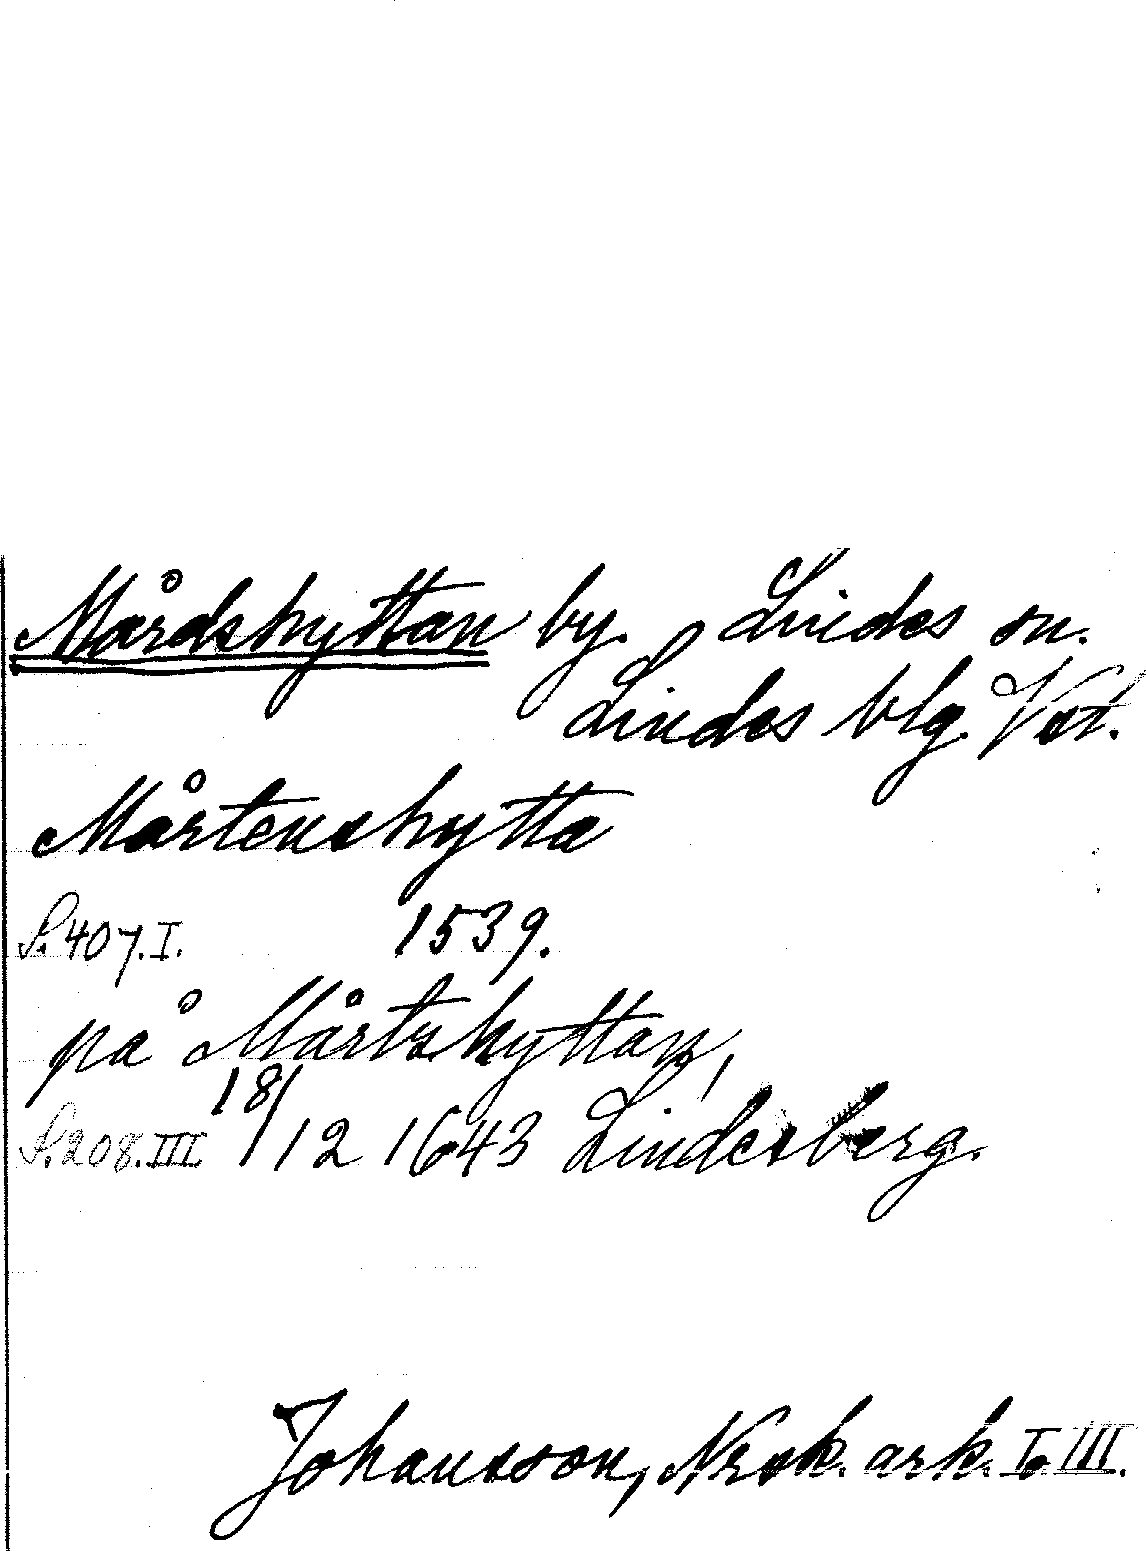 Mårdshyttan by. Lindes sn.
Lindes blg. Vst.
Mårtenshytta
S. 407. I. 1539.
på Mårtshyttan,
S. 208. III. 18/12 1643 Lindesberg.
Johansson, Norsk. ark. I o III.